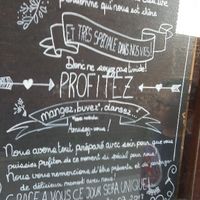 personne qui nous est chère
ET TRÈS SPÉCIALE DANS NOS VIES!
Donc ne soyez pas timide!
PROFITEZ
mangez, buvez, dansez...
Amusez-vous!
Nous avons tout préparé avec soin pour que vous
puissiez profiter de ce moment si spécial pour nous.
Nous vous remercions d'être présents et de partager
de délicieux moments avec nous!
GRÂCE À VOUS CE JOUR SERA UNIQUE!